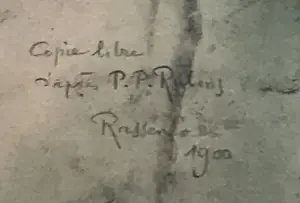 Copie libre
d'après P. P. Rubens
1900